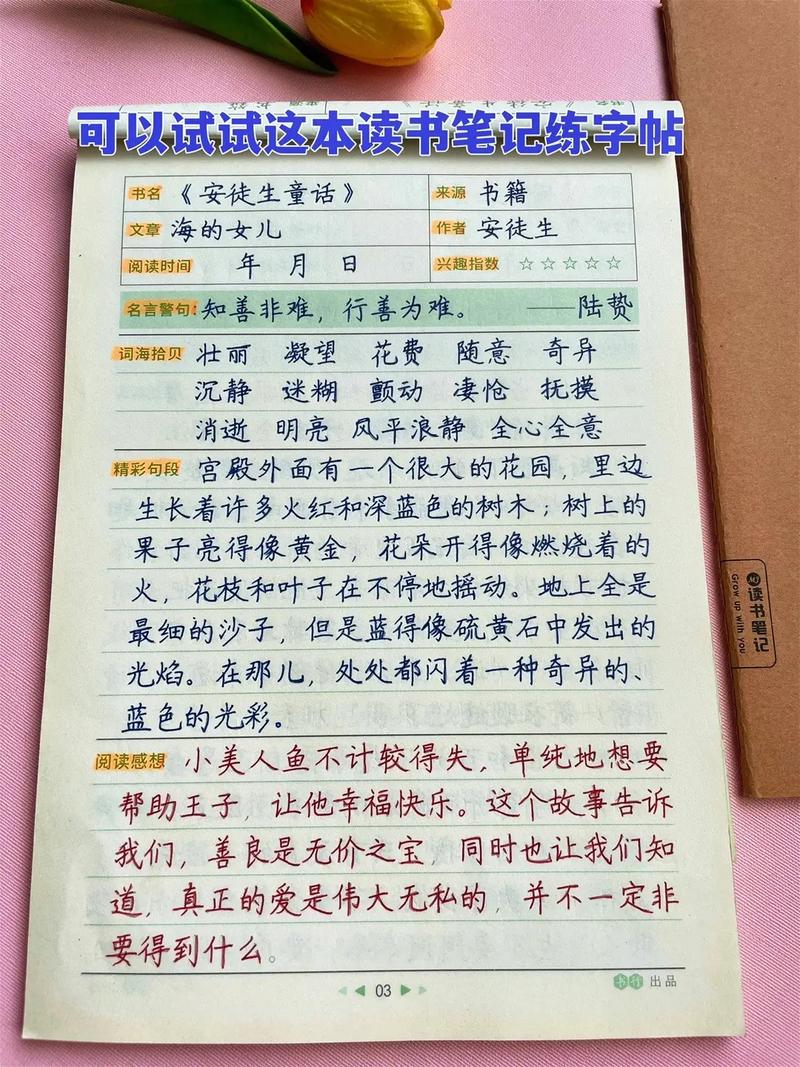 可以试试这本读书笔记练字帖
书名 《安徒生童话》 来源 书籍
文章 海的女儿 作者 安徒生
阅读时间 年 月 日 兴趣指数 ☆☆☆☆☆
名言警句: 知善非难，行善为难。 ——陆贽
词海拾贝 壮丽 凝望 花费 随意 奇异
沉静 迷糊 颤动 凄怆 抚摸
消逝 明亮 风平浪静 全心全意
精彩句段 宫殿外面有一个很大的花园，里边
生长着许多火红和深蓝色的树木；树上的
果子亮得像黄金，花朵开得像燃烧着的
火，花枝和叶子在不停地摇动。地上全是
最细的沙子，但是蓝得像硫黄石中发出的
光焰。在那儿，处处都闪着一种奇异的、
蓝色的光彩。
阅读感想 小美人鱼不计较得失，单纯地想要
帮助王子，让他幸福快乐。这个故事告诉
我们，善良是无价之宝，同时也让我们知
道，真正的爱是伟大无私的，并不一定非
要得到什么。
03
书行 出品
读书笔记
Grow up with you